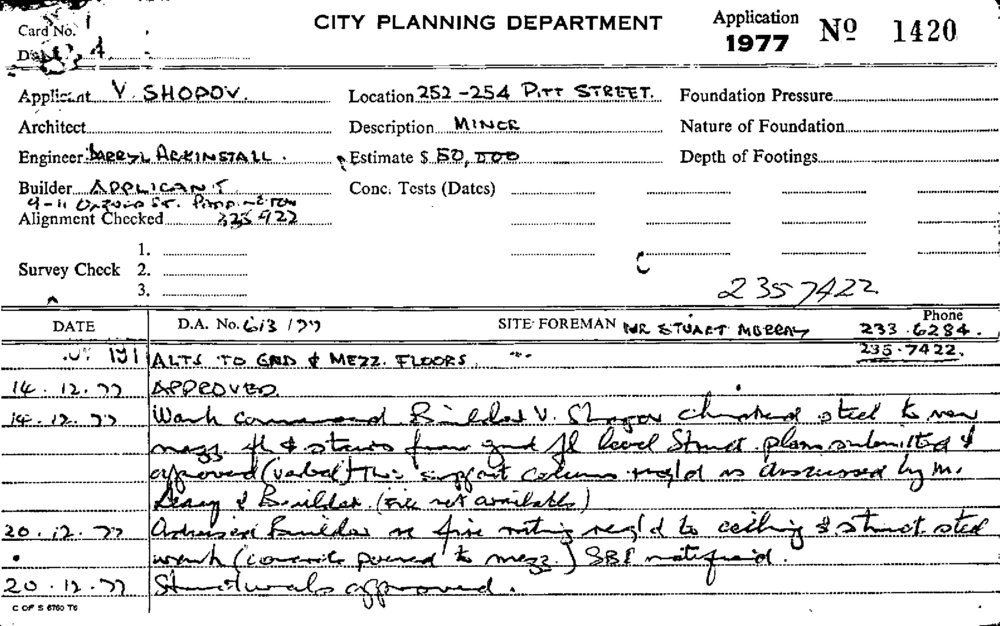 Card No. 1
CITY PLANNING DEPARTMENT
Application
1977
Nº 1420
Applicant V. SHOPOV.
Location 252-254 PITT STREET.
Foundation Pressure
Architect
Description MINOR
Nature of Foundation
Engineer DARRYL ARKINSTALL.
Estimate $ 50,000
Depth of Footings
Builder APPLICANT
Conc. Tests (Dates)
9-11 ST.
Alignment Checked 335422
1.
Survey Check 2.
3.
2357422
DATE
D.A. No. 613/77
SITE FOREMAN MR STUART MURRAY
Phone
233.6284.
235.7422.
ALTS TO GRD & MEZZ. FLOORS.
14.12.77 APPROVED
14.12.77 Work commenced. Builder V. Shopov steel to new
mezz. fl & stairs from grd fl level Struct. plans submitted &
approved (verbal) This support column req'd as discussed by Mr.
& Builder. (file not available)
20.12.77 Advised Builder re fire rating req'd to ceiling & struct. steel
work (concrete poured to mezz.) SBI
20.12.77 Structurals approved.
C OF S 6760 T6